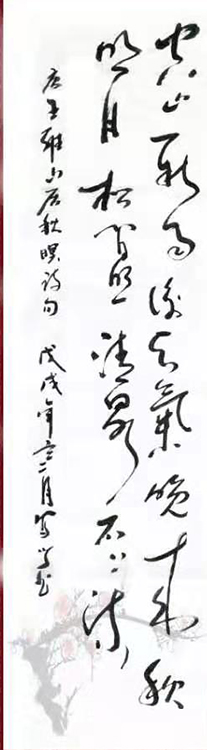 空山新雨後天氣晚来秋
明月松間照清泉石上流
唐王維山居秋暝詩句 戊戌年二月